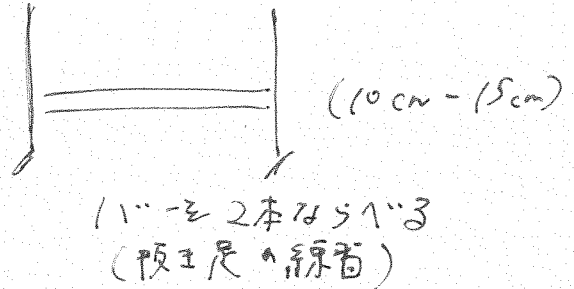 (10cm-15cm)
バーを2本ならべる
(抜き足の練習)